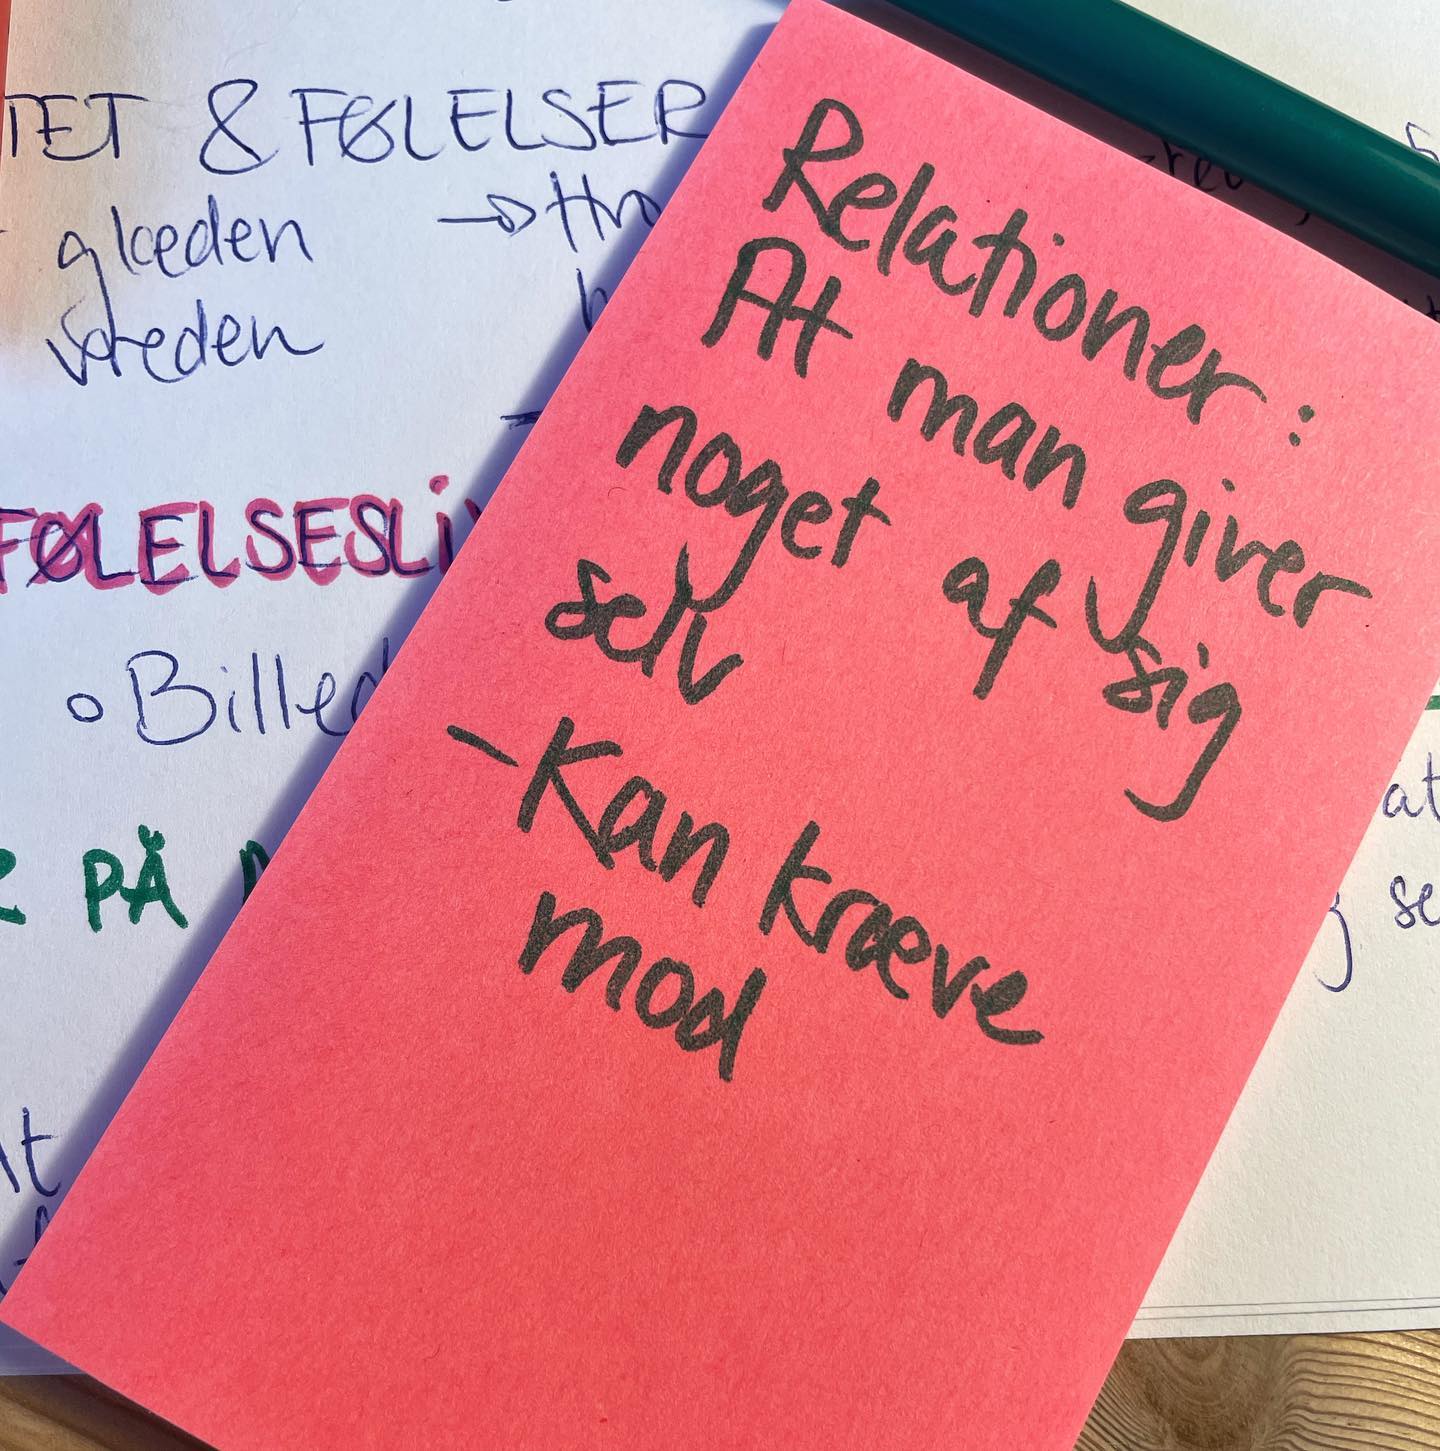 & FØLELSER
glæden
vreden
FØLELSESLI
PÅ
Relationer:
At man giver
noget af sig
selv
-Kan kræve
mod
at
se